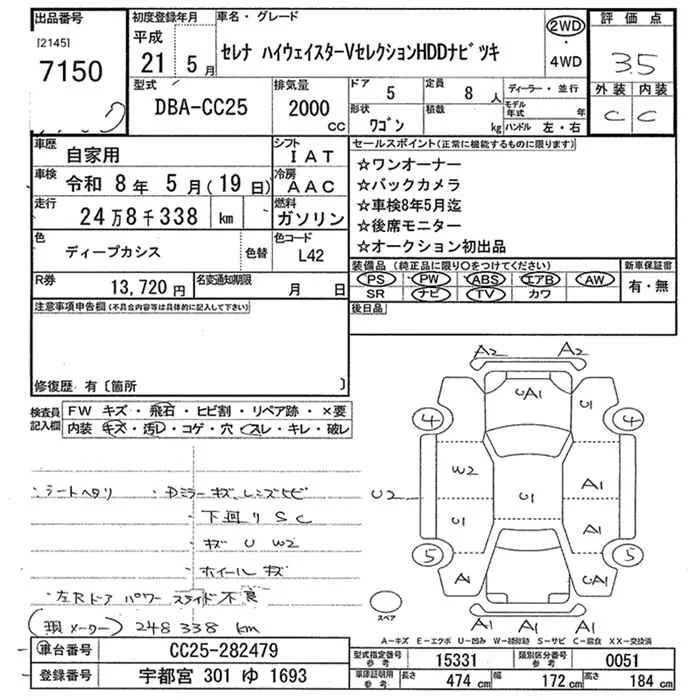 出品番号
[2145]
7150
初度登録年月
平成
21 5月
車名・グレード
セレナ ハイウェイスターVセレクションHDDナビツキ
2WD
・
4WD
評価点
3.5
外装 内装
C C
型式
DBA-CC25
排気量
2000
CC
ドア 5
定員 8人
形状 ワゴン
積載 kg
ディーラー・並行
モデル年式 年
ハンドル 左・右
車歴 自家用
シフト IAT
車検 令和 8年 5月(19日)
冷房 AAC
走行 24万8千338 km
燃料 ガソリン
色 ディープカシス
色替
色コード L42
R券 13,720円
名変通知期限 月 日
セールスポイント(正常に機能するものに限ります)
☆ワンオーナー
☆バックカメラ
☆車検8年5月迄
☆後席モニター
☆オークション初出品
装備品(純正品に限り〇をつけてください)
PS PW ABS エアB AW
SR ナビ TV カワ
新車保証書
有・無
後日品
注意事項申告欄(不具合内容等は具体的に記入して下さい)
修復歴 有〔箇所 〕
検査員記入欄
FW キズ・飛石・ヒビ割・リペア跡・×要
内装 キズ・汚レ・コゲ・穴・スレ・キレ・破レ
・シートヘタリ ・Dミラーキズ、レンズヒビ
下廻りSC
キズ U W2
ホイールキズ
・左Rドア パワースライド不良
(現メーター) 248338 km
A2 A2
UA1
U1
4 4
W2
A1
U2
U1
U1
A1
5 5
A1
UA1
A1 A1
スペア
A－キズ E－エクボ U－凹み W－補修跡 S－サビ C－腐食 XX－交換済
車台番号 CC25-282479
登録番号 宇都宮 301 ゆ 1693
型式指定番号
参考
15331
類別区分番号
参考
0051
車庫証明用
参考
長さ 474 cm
幅 172 cm
高さ 184 cm